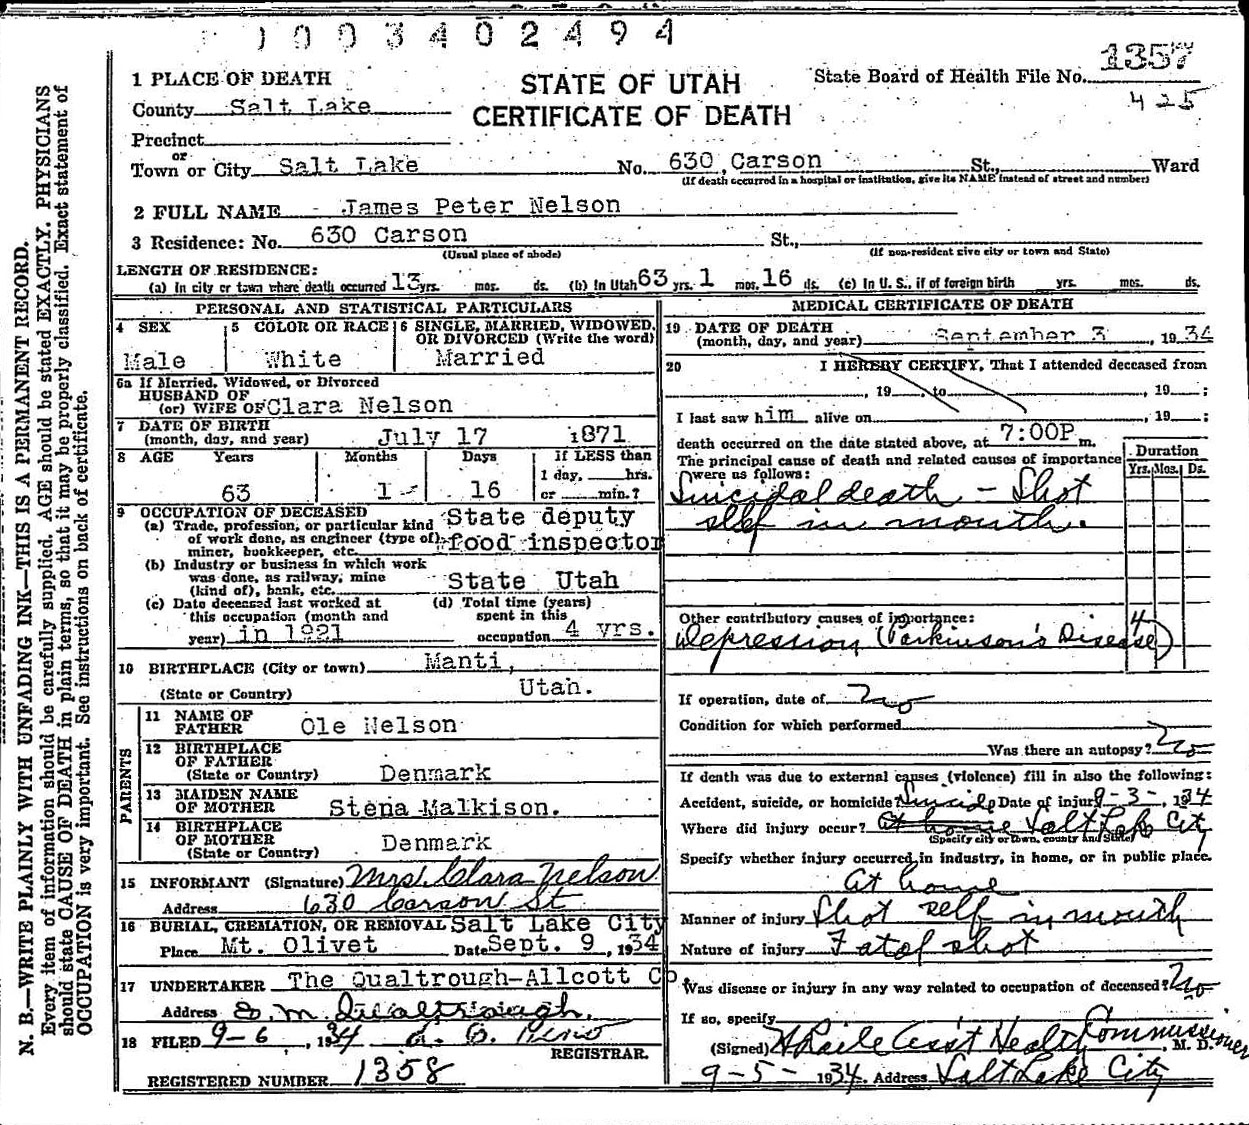 1003402494
1357
STATE OF UTAH
CERTIFICATE OF DEATH
State Board of Health File No.
425
1 PLACE OF DEATH
County Salt Lake
Precinct
or
Town or City Salt Lake No. 630 Carson St., Ward
(If death occurred in a hospital or institution, give its NAME instead of street and number)
2 FULL NAME James Peter Nelson
3 Residence: No. 630 Carson St.,
(Usual place of abode) (If non-resident give city or town and State)
LENGTH OF RESIDENCE:
(a) In city or town where death occurred 13 yrs. mos. ds. (b) In Utah 63 yrs. 1 mos. 16 ds. (c) In U. S., if of foreign birth yrs. mos. ds.
PERSONAL AND STATISTICAL PARTICULARS
4 SEX
Male
5 COLOR OR RACE
White
6 SINGLE, MARRIED, WIDOWED,
OR DIVORCED (Write the word)
Married
6a If Married, Widowed, or Divorced
HUSBAND OF
(or) WIFE OF Clara Nelson
7 DATE OF BIRTH
(month, day, and year) July 17 1871
8 AGE Years Months Days If LESS than
1 day, hrs.
63 1 16 or min.?
9 OCCUPATION OF DECEASED
(a) Trade, profession, or particular kind State deputy
of work done, as engineer (type of),
miner, bookkeeper, etc. food inspector
(b) Industry or business in which work
was done, as railway, mine
(kind of), bank, etc. State Utah
(c) Date deceased last worked at
this occupation (month and
year) in 1921
(d) Total time (years)
spent in this
occupation 4 yrs.
10 BIRTHPLACE (City or town) Manti,
(State or Country) Utah.
PARENTS
11 NAME OF
FATHER Ole Nelson
12 BIRTHPLACE
OF FATHER
(State or Country) Denmark
13 MAIDEN NAME
OF MOTHER Stena Malkison.
14 BIRTHPLACE
OF MOTHER
(State or Country) Denmark
15 INFORMANT (Signature) Mrs. Clara Nelson
Address 630 Carson St
16 BURIAL, CREMATION, OR REMOVAL Salt Lake City
Place Mt. Olivet Date Sept. 9, 1934
17 UNDERTAKER The Qualtrough-Allcott Co.
Address S. M. Qualtrough.
18 FILED 9-6, 1934
REGISTRAR.
REGISTERED NUMBER 1358
MEDICAL CERTIFICATE OF DEATH
19 DATE OF DEATH
(month, day, and year) September 3, 1934
20 I HEREBY CERTIFY, That I attended deceased from
, 19 , to , 19 ;
I last saw him alive on , 19 ;
death occurred on the date stated above, at 7:00P m.
The principal cause of death and related causes of importance
were as follows:
Duration
Yrs. Mos. Ds.
Suicidal death - Shot
self in mouth.
Other contributory causes of importance:
Depression (Parkinson's Disease) 4
If operation, date of no
Condition for which performed
Was there an autopsy? no
If death was due to external causes (violence) fill in also the following:
Accident, suicide, or homicide? Suicide Date of injury 9-3-, 1934
Where did injury occur? At home Salt Lake City
(Specify city or town, county and State)
Specify whether injury occurred in industry, in home, or in public place.
At home
Manner of injury Shot self in mouth
Nature of injury Fatal shot
Was disease or injury in any way related to occupation of deceased? no
If so, specify
(Signed) Ass't Health Commissioner, M. D.
9-5- 1934. Address Salt Lake City
N. B.—WRITE PLAINLY WITH UNFADING INK—THIS IS A PERMANENT RECORD.
Every item of information should be carefully supplied. AGE should be stated EXACTLY. PHYSICIANS
should state CAUSE OF DEATH in plain terms, so that it may be properly classified. Exact statement of
OCCUPATION is very important. See instructions on back of certificate.